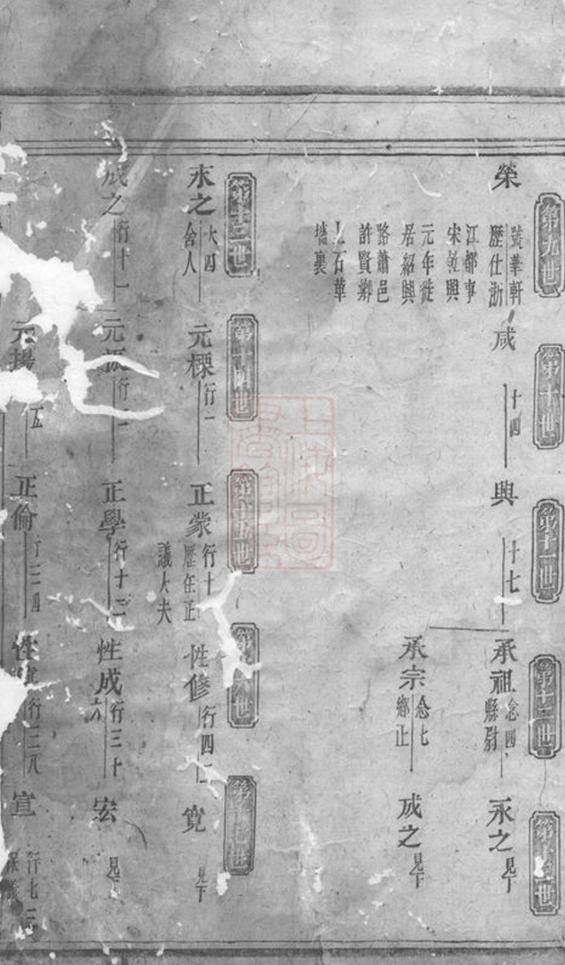 第九世
第十世
第十一世
第十二世
第十三世
榮
號華軒
歷仕浙
江都事
宋乾興
元年徙
居紹興
路蕭邑
許賢鄉
上石華
墻裏
咸
十四
興
十七
承祖
念四
縣尉
永之
見下
承宗
念七
鄉正
成之
見下
第十三世
第十四世
第十五世
第十六世
第十七世
永之
大四
舍人
元標
行一
正蒙
行十
歷任正
議大夫
性修
行四二
寬
見下
成之
行十一
元振
行二
正學
行十二
性成
行三十
宏
見下
元
正倫
行二四
性
行二八
宣
行七